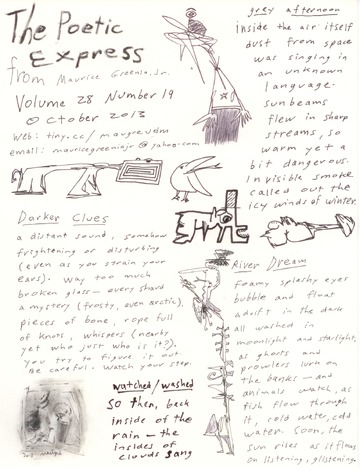 The Poetic
Express
from Maurice Greenia, Jr.
Volume 28 Number 19
October 2013
Web: tiny.cc/maugreusdm
email: mauricegreeniajr@yahoo.com
grey afternoon
inside the air itself
dust from space
was singing in
an unknown
language.
sunbeams
flew in sharp
streams, so
warm yet a
bit dangerous.
Invisible smoke
called out the
icy winds of winter.
Darker Clues
a distant sound, somehow
frightening or disturbing
(even as you strain your
ears). Way too much
broken glass — every shard
a mystery (frosty, even arctic).
pieces of bone, rope full
of knots, whispers (nearby
yet who just who is it?).
You try to figure it out
Be careful. Watch your step.
River Dream
Foamy splashy eyes
bubble and float
adrift in the dark
all washed in
moonlight and starlight,
as ghosts and
prowlers lurk on
the banks — and
animals watch, as
fish flow through
it, cold water, cold
water. Soon, the
sun rises as it flows
on listening, glistening.
watched/washed
So then, back
inside of the
rain — the
insides of
clouds sang